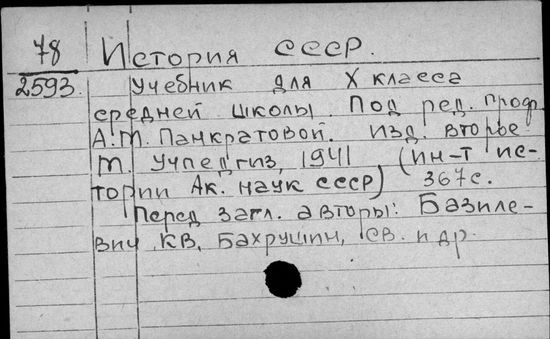 78
История СССР.
2593.
Учебник для X класса
средней школы. Под ред. проф.
А.М. Панкратовой. изд. второе
М. Учпедгиз, 1941 (ин-т ис-
тории Ак. наук СССР) 367с.
Перед загл. авторы: Базиле-
вич КВ, Бахрушин, СВ. и др.